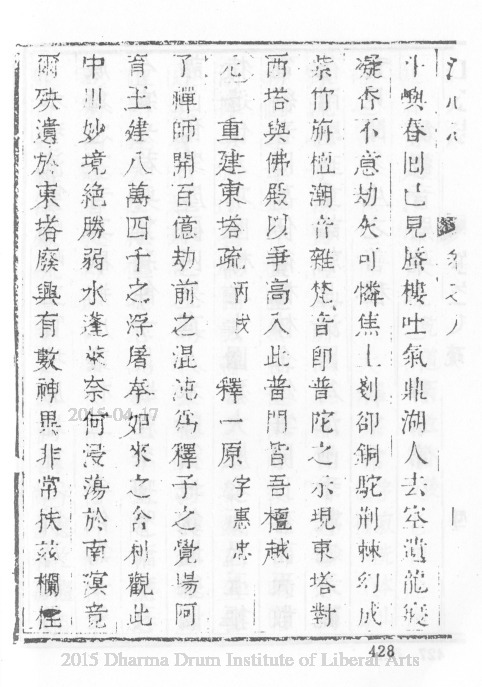 江心志 卷之八
斗嶼春回已見蜃樓吐氣鼎湖人去空遺龍寢
凝香不意劫灰可憐焦土剗卻銅駝荊棘幻成
紫竹旃檀潮音雜梵音即普陀之示現東塔對
西塔與佛殿以爭高入此普門皆吾檀越
元 重建東塔疏 丙戌 釋一原 字惠忠
了禪師開百億劫前之混沌為釋子之覺場阿
育王建八萬四千之浮屠奉如來之舍利觀此
中川妙境絕勝弱水蓬萊奈何浸蕩於南溟竟
爾殃遺於東塔廢興有數神異非常扶茲欄
428
2015-04-17
2015 Dharma Drum Institute of Liberal Arts